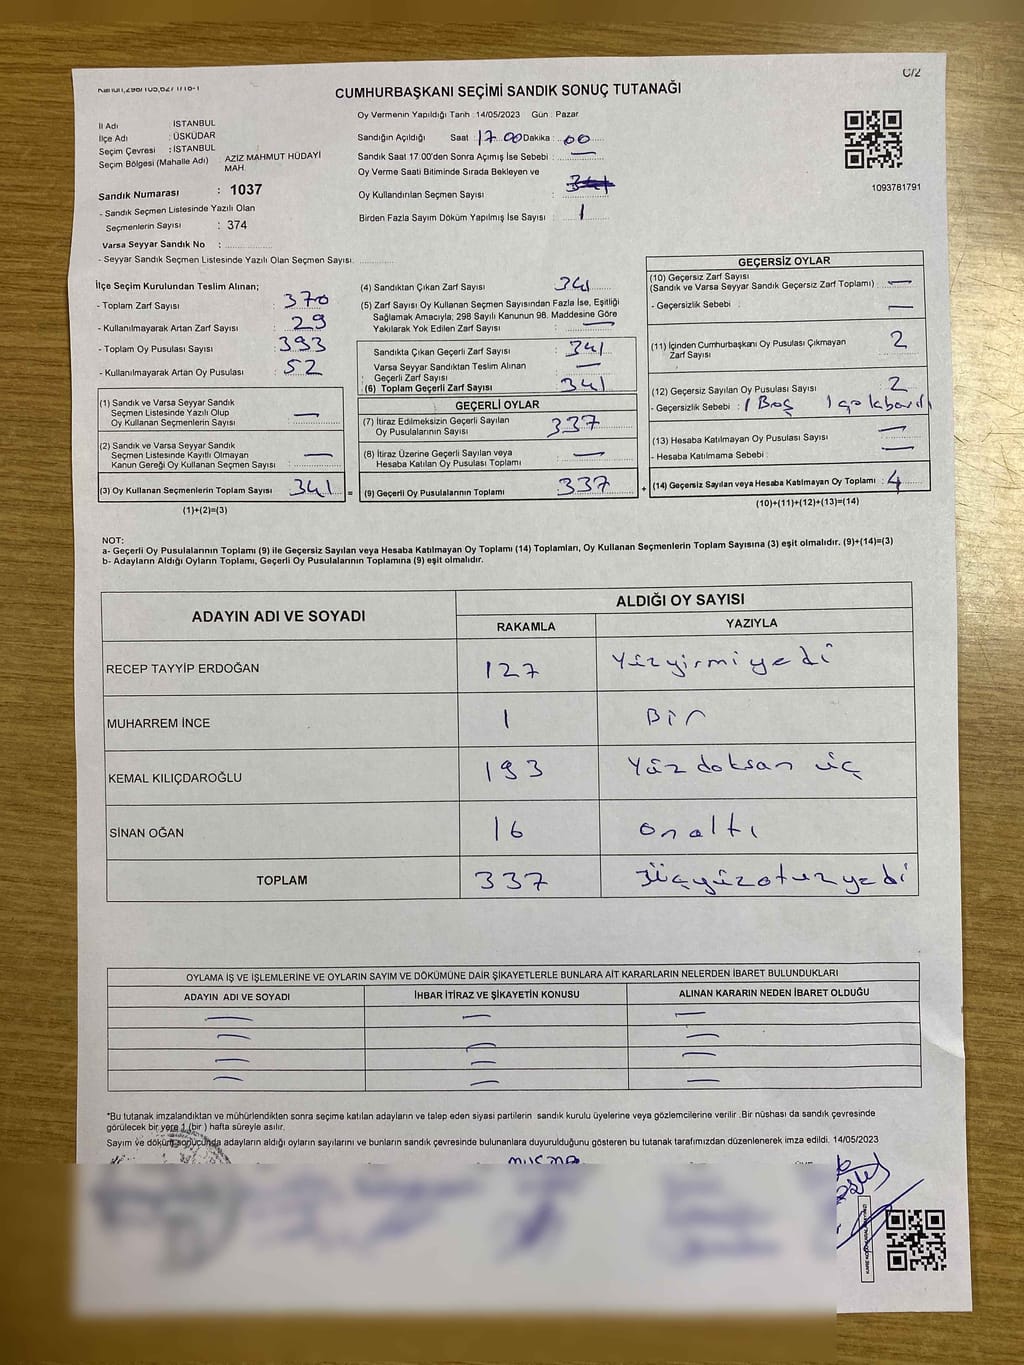 C/2
CUMHURBAŞKANI SEÇİMİ SANDIK SONUÇ TUTANAĞI
İl Adı : İSTANBUL
İlçe Adı : ÜSKÜDAR
Seçim Çevresi : İSTANBUL
Seçim Bölgesi (Mahalle Adı) : AZİZ MAHMUT HÜDAYİ
MAH.
Sandık Numarası : 1037
- Sandık Seçmen Listesinde Yazılı Olan
Seçmenlerin Sayısı : 374
Varsa Seyyar Sandık No :
- Seyyar Sandık Seçmen Listesinde Yazılı Olan Seçmen Sayısı:
Oy Vermenin Yapıldığı Tarih : 14/05/2023 Gün : Pazar
Sandığın Açıldığı Saat : 17.00 Dakika : 00
Sandık Saat 17:00'den Sonra Açımış İse Sebebi : —
Oy Verme Saati Bitiminde Sırada Bekleyen ve
Oy Kullandırılan Seçmen Sayısı :
Birden Fazla Sayım Döküm Yapılmış İse Sayısı : 1
1093781791
İlçe Seçim Kurulundan Teslim Alınan;
- Toplam Zarf Sayısı : 370
- Kullanılmayarak Artan Zarf Sayısı : 29
- Toplam Oy Pusulası Sayısı : 393
- Kullanılmayarak Artan Oy Pusulası : 52
(1) Sandık ve Varsa Seyyar Sandık
Seçmen Listesinde Yazılı Olup
Oy Kullanan Seçmenlerin Sayısı : —
(2) Sandık ve Varsa Seyyar Sandık
Seçmen Listesinde Kayıtlı Olmayan
Kanun Gereği Oy Kullanan Seçmen Sayısı : —
(3) Oy Kullanan Seçmenlerin Toplam Sayısı : 341 =
(1)+(2)=(3)
(4) Sandıktan Çıkan Zarf Sayısı : 341
(5) Zarf Sayısı Oy Kullanan Seçmen Sayısından Fazla İse, Eşitliği
Sağlamak Amacıyla; 298 Sayılı Kanunun 98. Maddesine Göre
Yakılarak Yok Edilen Zarf Sayısı : —
Sandıkta Çıkan Geçerli Zarf Sayısı : 341
Varsa Seyyar Sandıktan Teslim Alınan
Geçerli Zarf Sayısı : —
(6) Toplam Geçerli Zarf Sayısı : 341
GEÇERLİ OYLAR
(7) İtiraz Edilmeksizin Geçerli Sayılan
Oy Pusulalarının Sayısı : 337
(8) İtiraz Üzerine Geçerli Sayılan veya
Hesaba Katılan Oy Pusulası Toplamı : —
(9) Geçerli Oy Pusulalarının Toplamı : 337 +
GEÇERSİZ OYLAR
(10) Geçersiz Zarf Sayısı
(Sandık ve Varsa Seyyar Sandık Geçersiz Zarf Toplamı) : —
- Geçersizlik Sebebi : —
(11) İçinden Cumhurbaşkanı Oy Pusulası Çıkmayan
Zarf Sayısı : 2
(12) Geçersiz Sayılan Oy Pusulası Sayısı : 2
- Geçersizlik Sebebi : 1 Boş 1
(13) Hesaba Katılmayan Oy Pusulası Sayısı : —
- Hesaba Katılmama Sebebi : —
(14) Geçersiz Sayılan veya Hesaba Katılmayan Oy Toplamı : 4
(10)+(11)+(12)+(13)=(14)
NOT:
a- Geçerli Oy Pusulalarının Toplamı (9) ile Geçersiz Sayılan veya Hesaba Katılmayan Oy Toplamı (14) Toplamları, Oy Kullanan Seçmenlerin Toplam Sayısına (3) eşit olmalıdır. (9)+(14)=(3)
b- Adayların Aldığı Oyların Toplamı, Geçerli Oy Pusulalarının Toplamına (9) eşit olmalıdır.
ADAYIN ADI VE SOYADI ALDIĞI OY SAYISI
RAKAMLA YAZIYLA
RECEP TAYYİP ERDOĞAN 127 Yüzyirmiyedi
MUHARREM İNCE 1 Bir
KEMAL KILIÇDAROĞLU 193 Yüzdoksan üç
SİNAN OĞAN 16 onaltı
TOPLAM 337 Üçyüzotuzyedi
OYLAMA İŞ VE İŞLEMLERİNE VE OYLARIN SAYIM VE DÖKÜMÜNE DAİR ŞİKAYETLERLE BUNLARA AİT KARARLARIN NELERDEN İBARET BULUNDUKLARI
ADAYIN ADI VE SOYADI İHBAR İTİRAZ VE ŞİKAYETİN KONUSU ALINAN KARARIN NEDEN İBARET OLDUĞU
— — —
— — —
— — —
— — —
*Bu tutanak imzalandıktan ve mühürlendikten sonra seçime katılan adayların ve talep eden siyasi partilerin sandık kurulu üyelerine veya gözlemcilerine verilir .Bir nüshası da sandık çevresinde
görülecek bir yere 1 (bir ) hafta süreyle asılır.
Sayım ve döküm sonucunda adayların aldığı oyların sayılarını ve bunların sandık çevresinde bulunanlara duyurulduğunu gösteren bu tutanak tarafımızdan düzenlenerek imza edildi. 14/05/2023